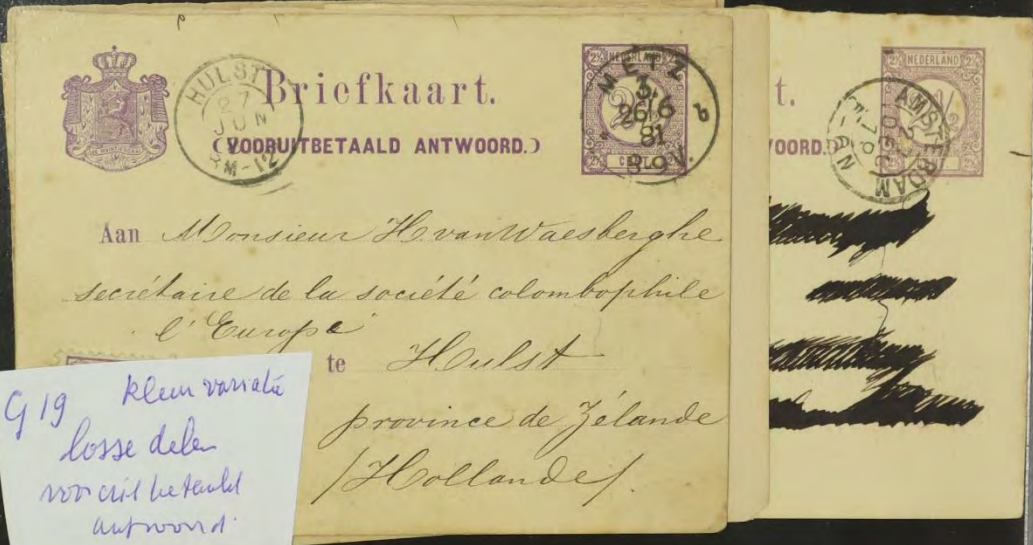 Briefkaart.
(VOORUITBETAALD ANTWOORD.)
HULST
27
JUN
M-12
NEDERLAND
2½
METZ
26/6
81
8-9V.
b
Aan Monsieur H. van Waesberghe
secrétaire de la société colombophile
l'Europe
te Hulst
province de Zélande
/Hollande/.
G 19 kleur variatie
losse delen
vooruitbetaald
antwoord.
t.
WOORD.)
NEDERLAND
2½
AMSTERDAM